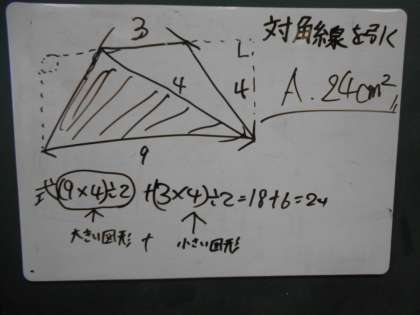 対角線を引く
3
4
4
9
A. 24cm²
式(9×4)÷2 +(3×4)÷2=18+6=24
大きい図形 + 小さい図形